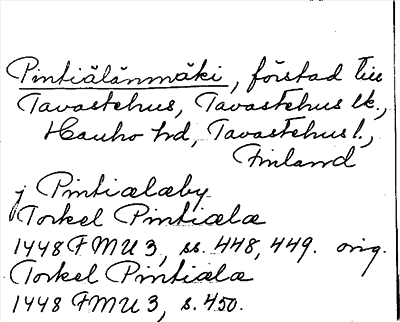 Pintiälänmäki, förstad till
Tavastehus, Tavastehus lk.,
Hauho hd, Tavastehus l.,
Finland
j Pintiælæby
Torkel Pintiælæ
1448 FMU 3, ss. 448, 449. orig.
Torkel Pintiælæ
1448 FMU 3, s. 450.